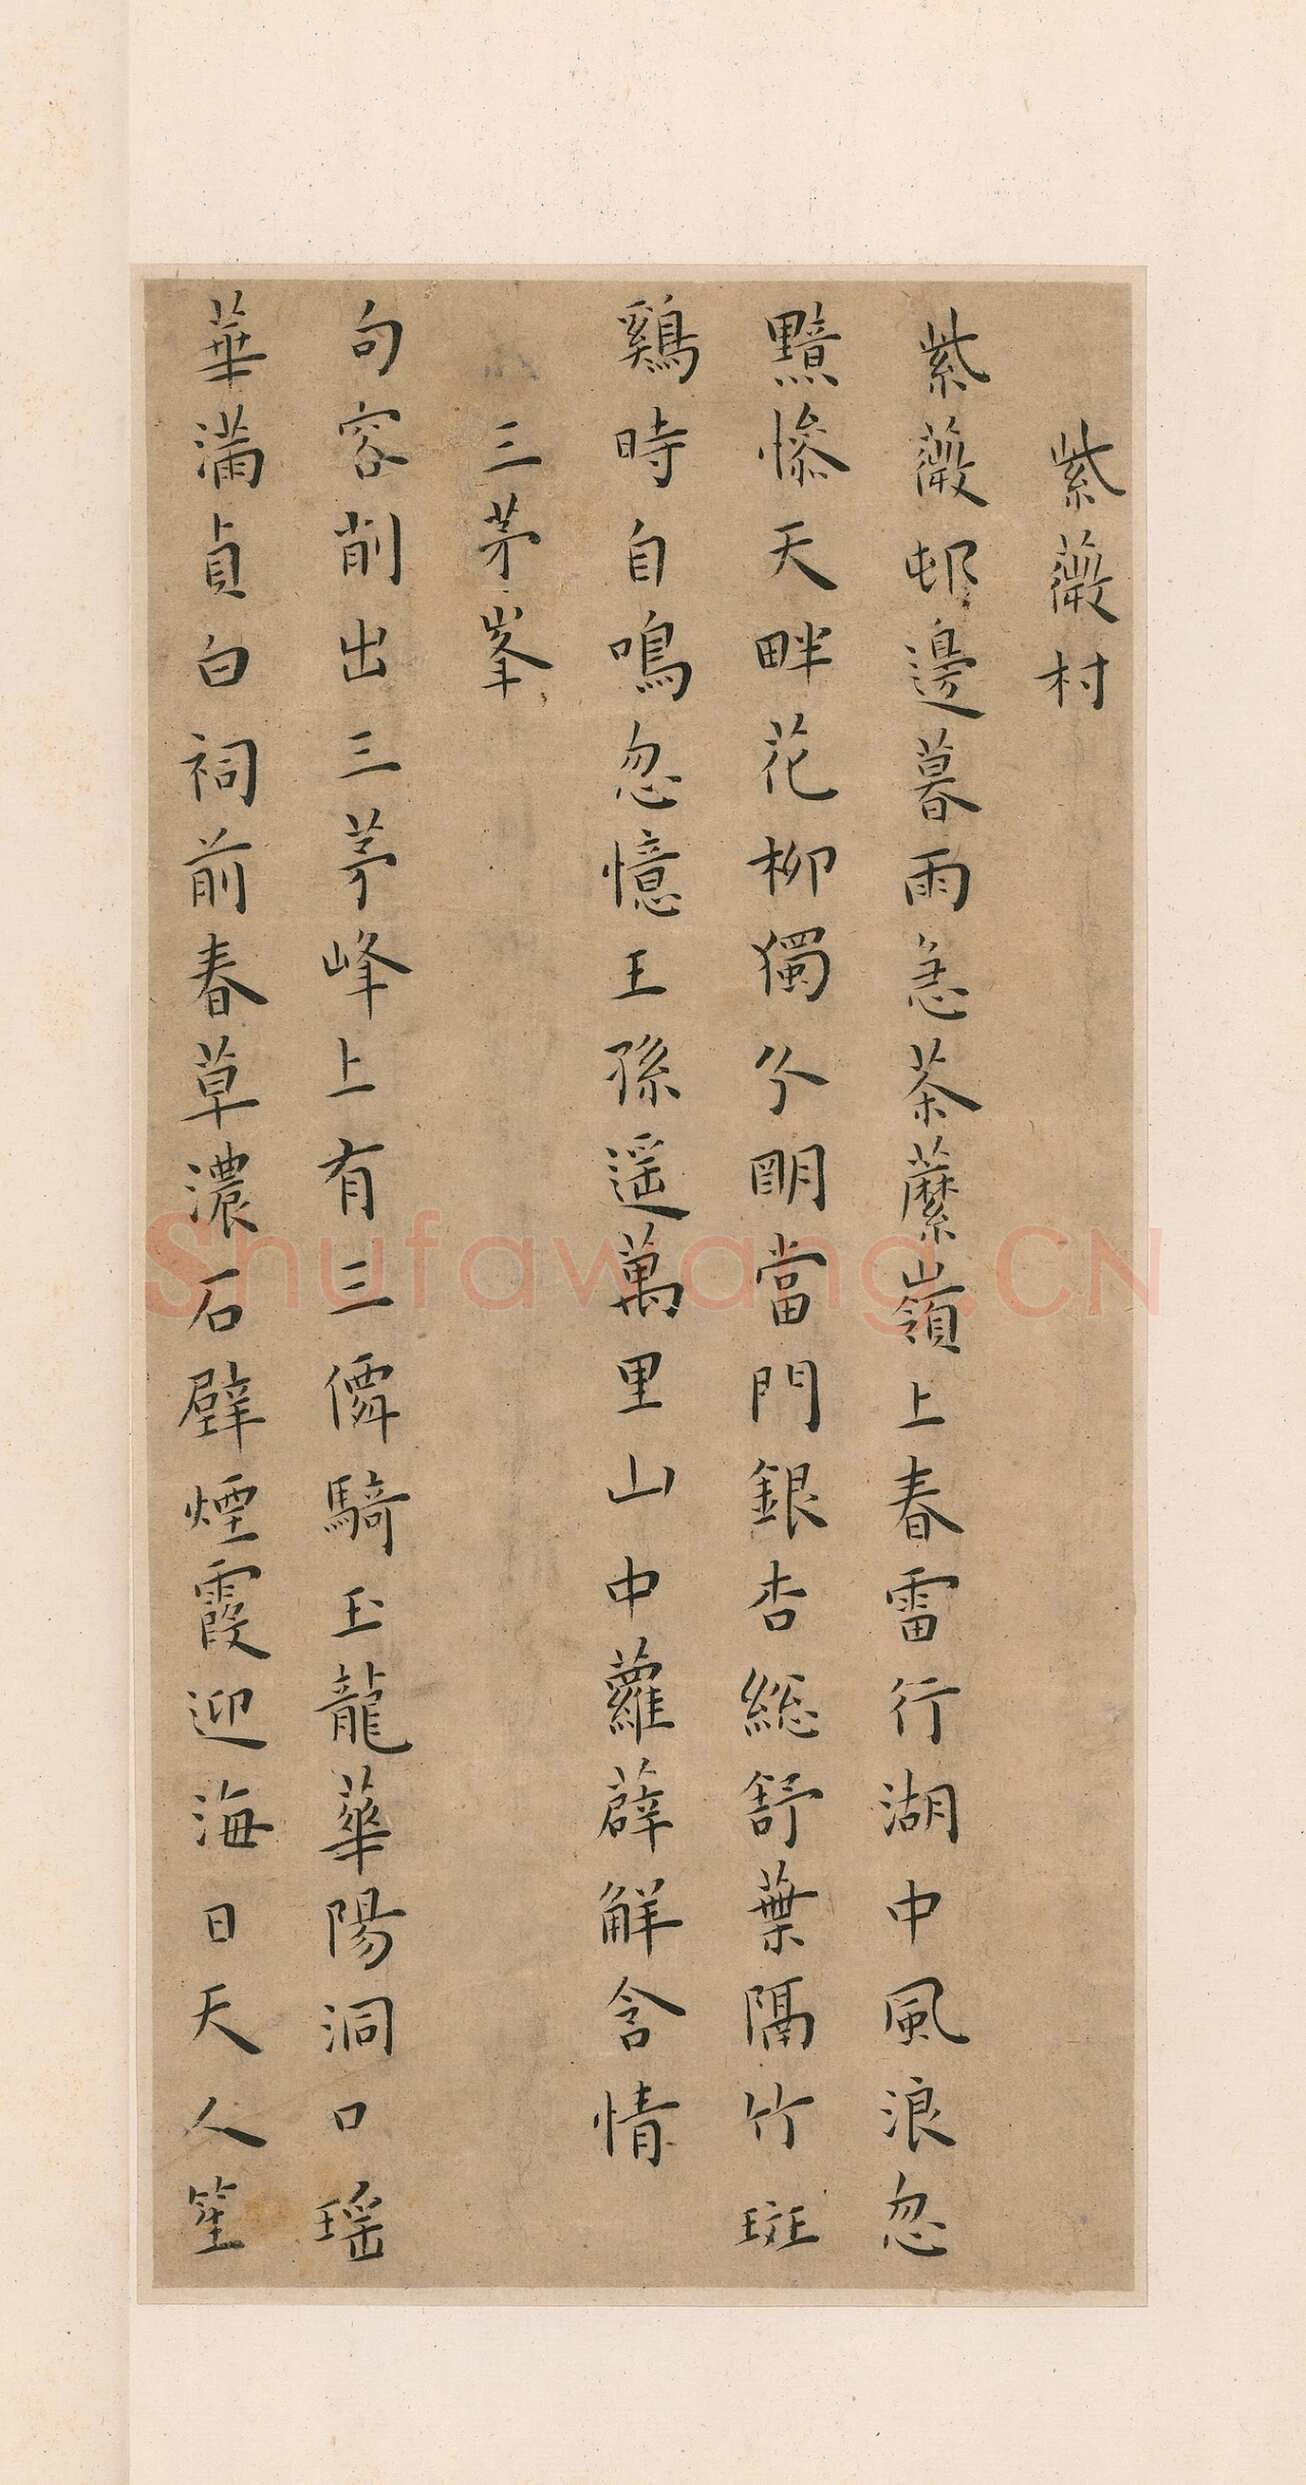 紫薇村
紫薇邨邊暮雨急茶蘼嶺上春雷行湖中風浪忽
黯慘天畔花柳獨分明當門銀杏総舒葉隔竹斑
鷄時自鳴忽憶王孫遥萬里山中蘿薜解含情
三茅峯
句容削出三茅峰上有三僊騎玉龍華陽洞口瑶
華滿貞白祠前春草濃石壁煙霞迎海日天人笙
Shufawang.CN